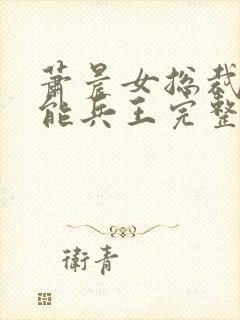 萧晨女总裁
能兵王完整
衛青